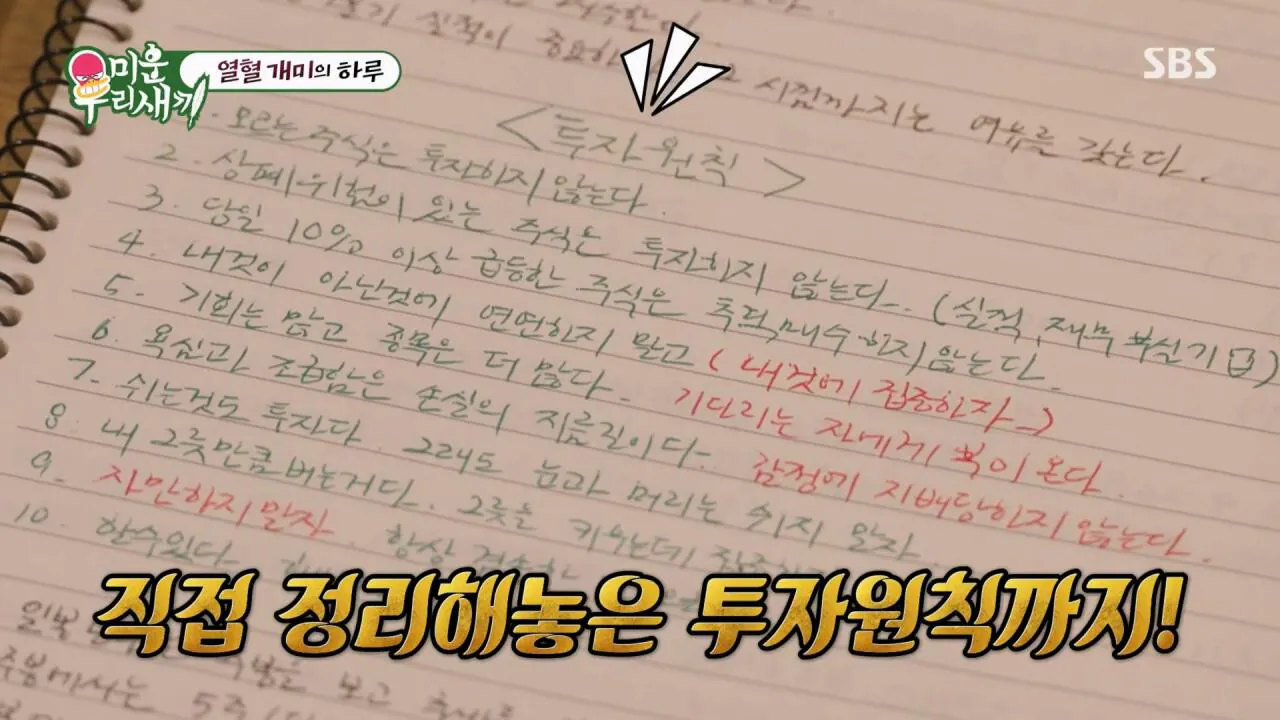 미운 우리새끼
열혈 개미의 하루
SBS
시점까지는 여유를 갖는다.
<투자원칙>
모르는 주식은 투자하지 않는다.
2. 상폐위험이 있는 주식은 투자하지 않는다. (실적, 재무 부실기업)
3. 당일 10% 이상 급등한 주식은 추격매수 하지 않는다.
4. 내것이 아닌것에 연연하지 말고 (내것에 집중하자)
5. 기회는 많고 종목은 더 많다. 기다리는 자에게 복이 온다.
6. 욕심과 조급함은 손실의 지름길이다. 감정에 지배당하지 않는다.
7. 쉬는것도 투자다. 그래도 눈과 머리는 쉬지 말자
8. 내 그릇만큼 버는거다. 그릇을 키우는데
9. 자만하지 말자. 항상
10. 할수있다
직접 정리해놓은 투자원칙까지!
보고
5주